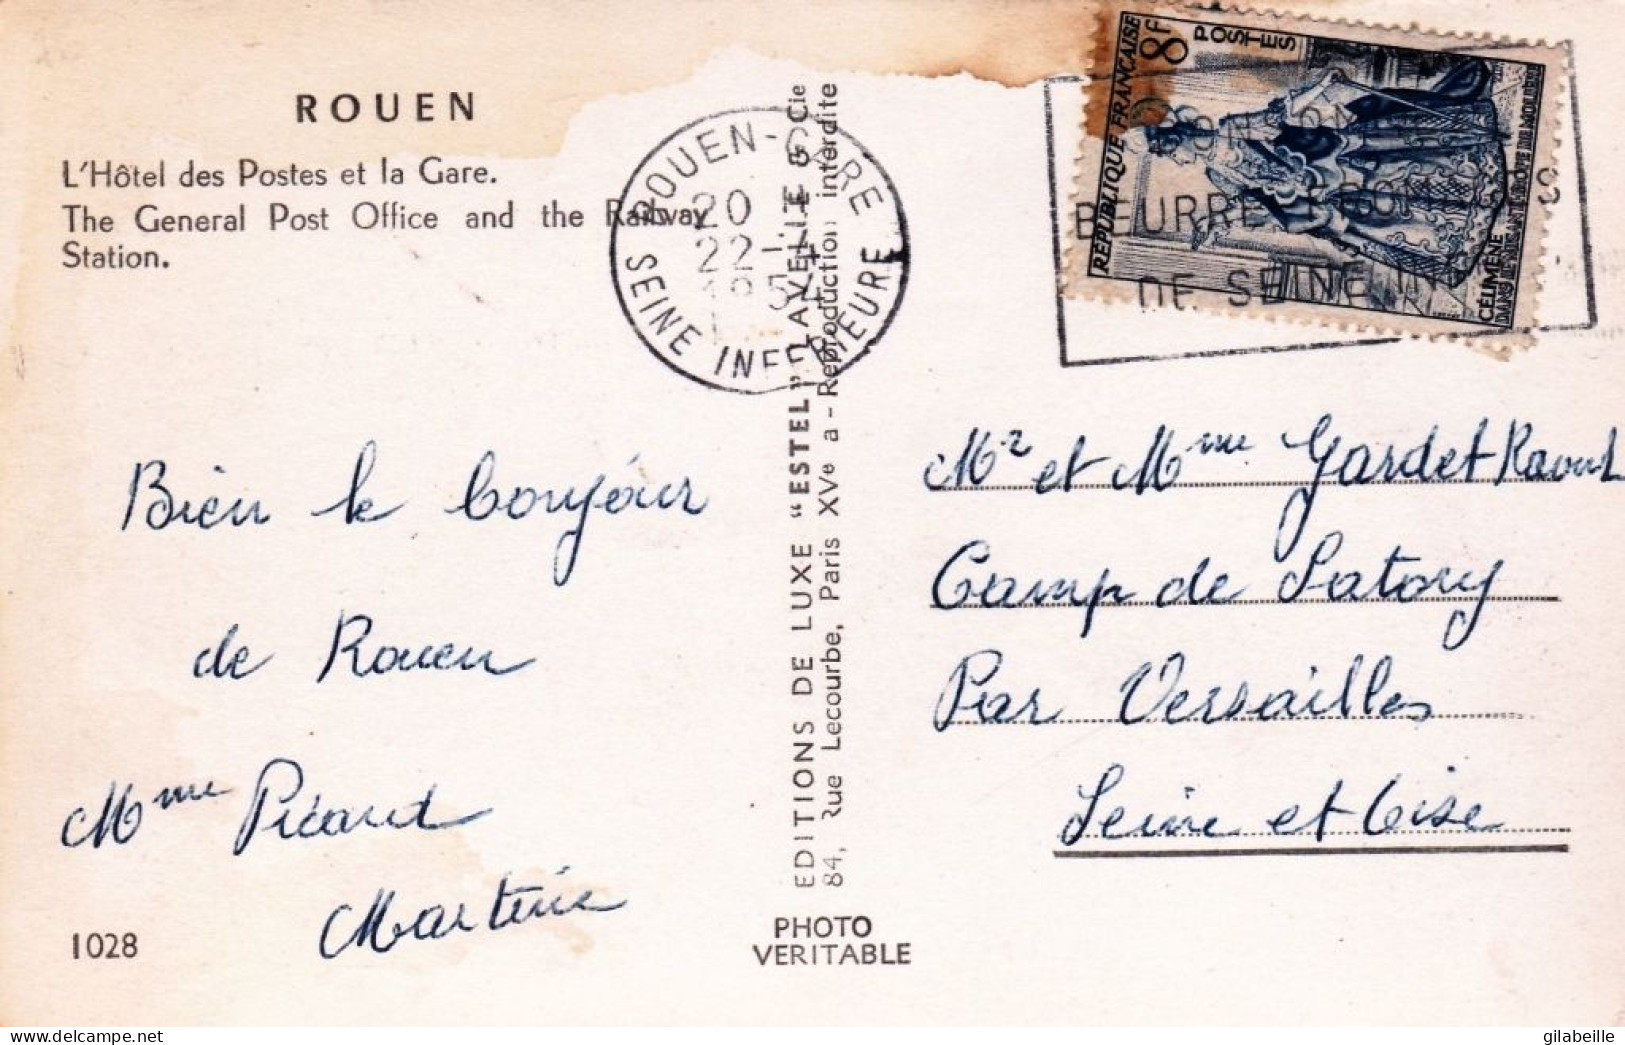 ROUEN
L'Hôtel des Postes et la Gare.
The General Post Office and the Railway
Station.
ROUEN-GARE
20
22-4
1954
SEINE INFERIEURE
RÉPUBLIQUE FRANÇAISE
8F
POSTES
CÉLIMÈNE
BEURRE
DE SEINE IN
Bien le bonjour
de Rouen
Mme Picard
1028
EDITIONS DE LUXE "ESTEL" LAVELLE & Cie
84, Rue Lecourbe, Paris XVe a - Reproduction interdite
PHOTO
VERITABLE
Mr et Mme Gardet Raoul
Camp de Satory
Par Versailles
Seine et Oise
gilabeille